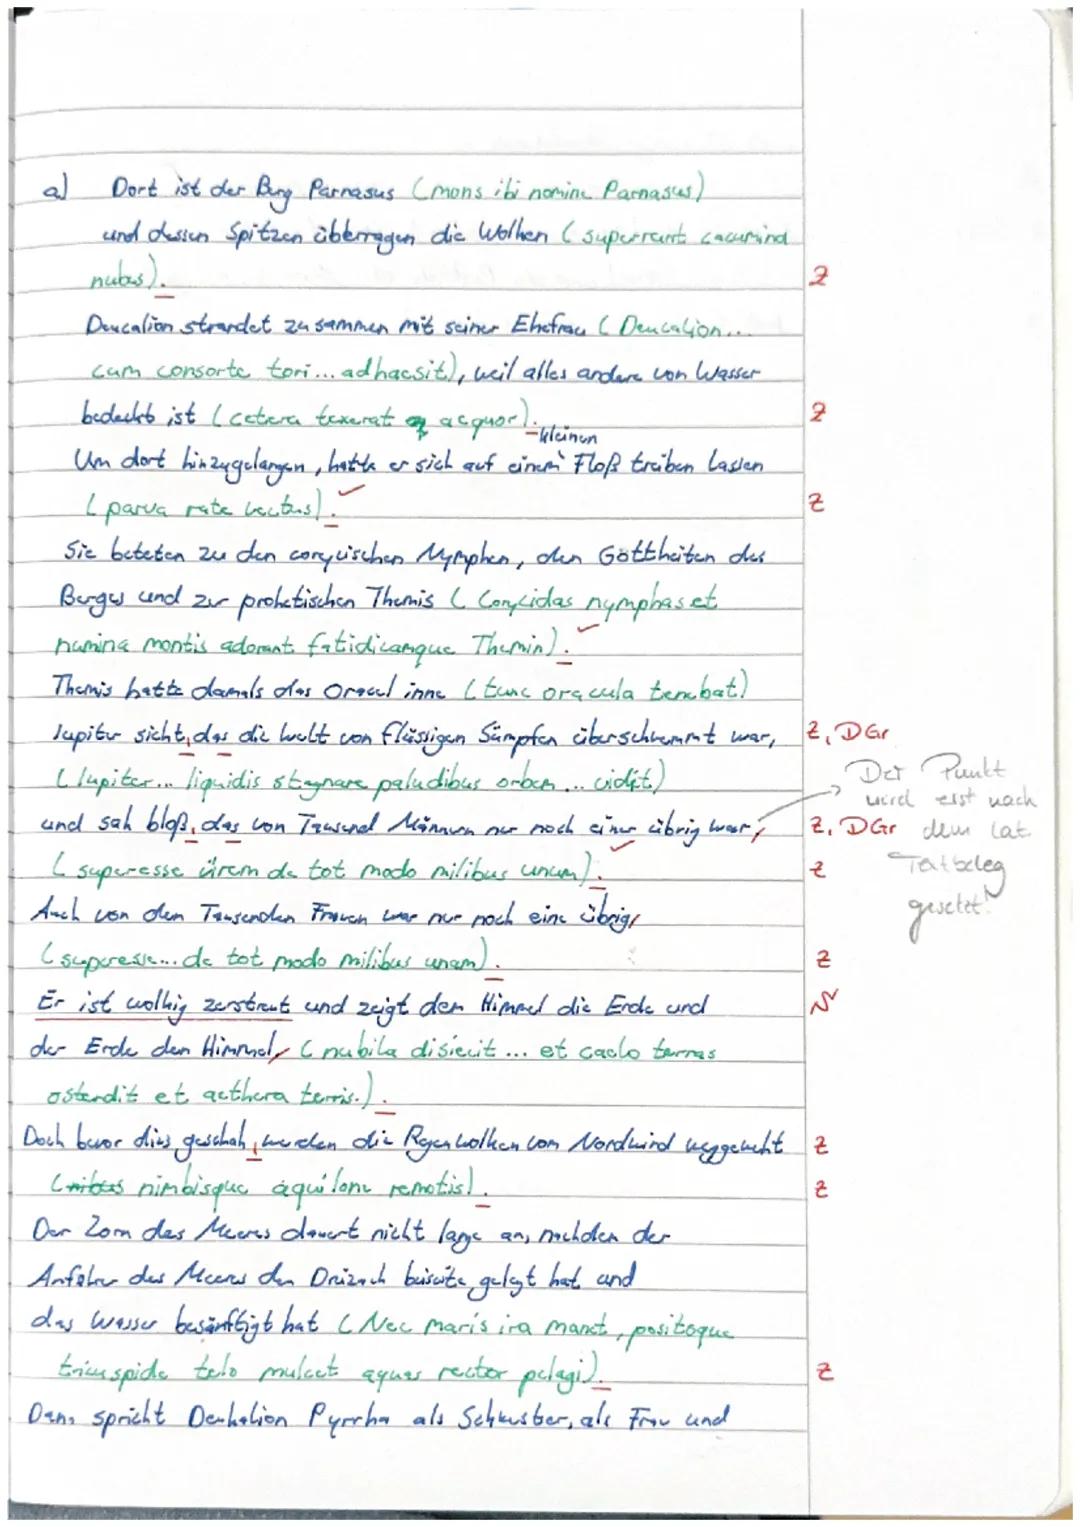 a) Dort ist der Berg Parnasus (mons ibi nomine Parnasus)
und dessen Spitzen überragen die Wolken (superrant cacumina
nubes).
Z
Deucalion strandet zusammen mit seiner Ehefrau (Deucalion...
cum consorte tori... adhaesit), weil alles andere von Wasser
bedeckt ist (cetera texerat aequor).
Z
kleinen
Um dort hinzugelangen, hatte er sich auf einem Floß treiben lassen
(parva rate vectus).
Z
Sie beteten zu den corycischen Nymphen, den Gottheiten des
Berges und zur prohetischen Themis (Corycidas nymphas et
numina montis adorant fatidicamque Themin).
Themis hatte damals das Oracel inne (tunc oracula tenebat)
Iupiter sieht, das die Welt von flüssigen Sümpfen überschwemmt war,
Z, DGr
(Iupiter... liquidis stagnare paludibus orbem ... vidit)
und sah bloß, das von Tausend Männern nur noch einer übrig war,
Z, DGr
Der Punkt
wird erst nach
dem lat.
Textbeleg
gesetzt!
(superesse virem de tot modo milibus unum).
Z
Auch von den Tausenden Frauen war nur noch eine übrig,
(superesse... de tot modo milibus unam).
Z
Er ist wolkig zerstreut und zeigt dem Himmel die Erde und
N
der Erde den Himmel, (nubila disiecit ... et caelo terras
ostendit et aethera terris.).
Doch bevor dies geschah, wurden die Regenwolken vom Nordwind weggeweht
Z
(nimbisque aquilone remotis).
Z
Der Zorn des Meeres dauert nicht lange an, nachdem der
Anführer des Meeres den Dreizack beiseite gelegt hat und
das Wasser besänftigt hat (Nec maris ira manet, positoque
tricuspide telo mulcet aquas rector pelagi).
Z
Dann spricht Deukalion Pyrrha als Schwester, als Frau und